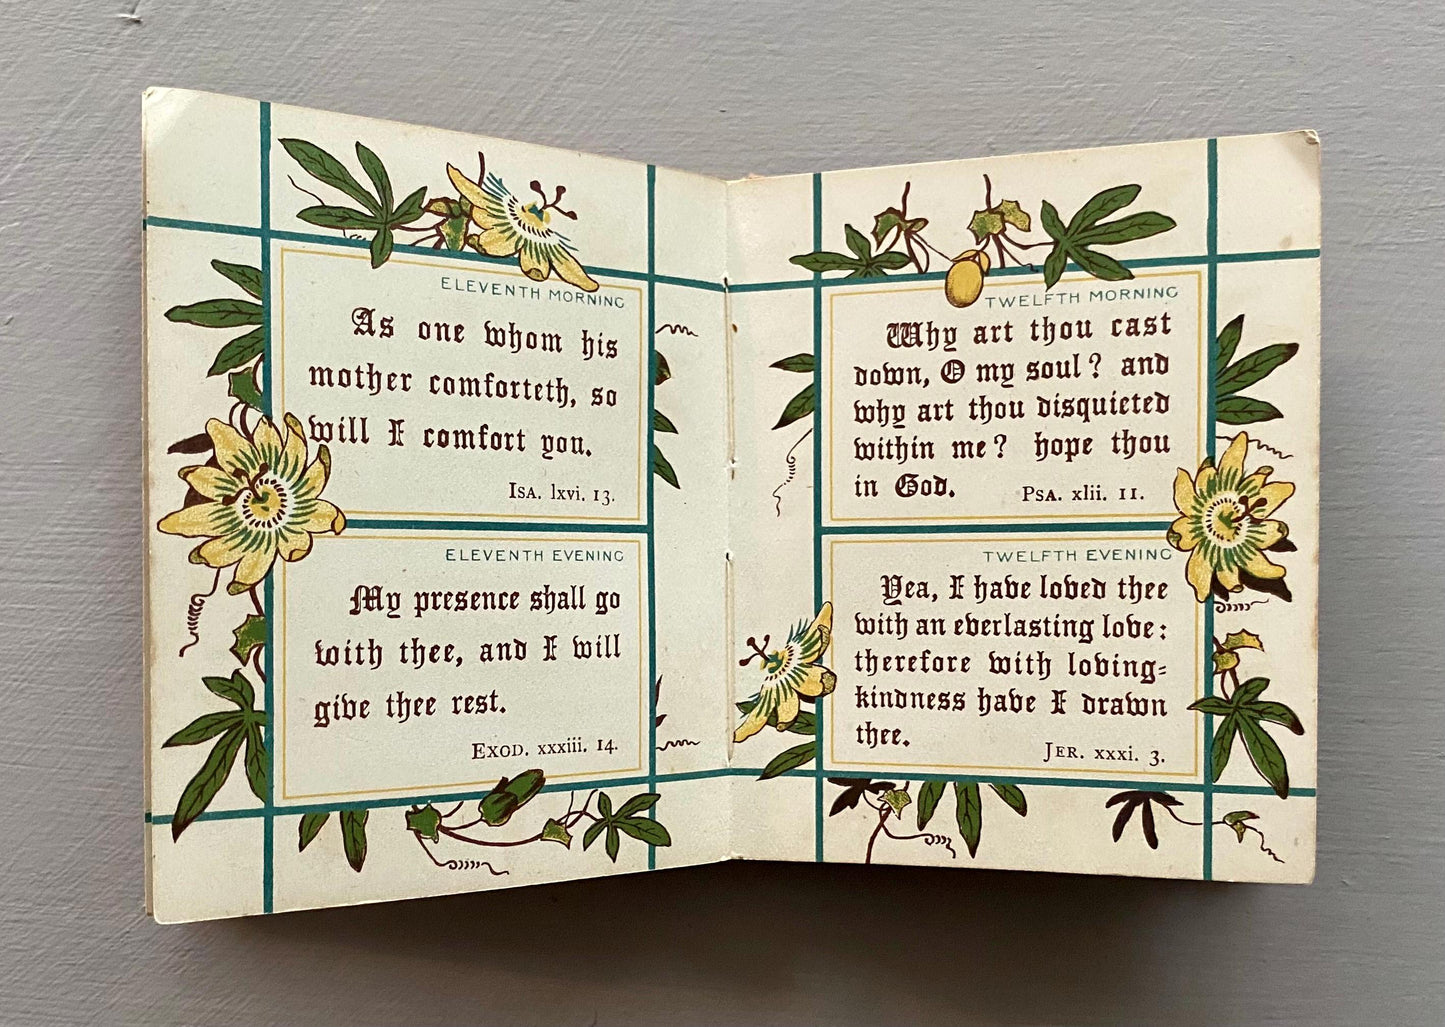 ELEVENTH MORNING
As one whom his
mother comforteth, so
will I comfort you.
ISA. lxvi. 13.
ELEVENTH EVENING
My presence shall go
with thee, and I will
give thee rest.
EXOD. xxxiii. 14.
TWELFTH MORNING
Why art thou cast
down, O my soul? and
why art thou disquieted
within me? hope thou
in God. PSA. xlii. 11.
TWELFTH EVENING
Yea, I have loved thee
with an everlasting love:
therefore with loving-
kindness have I drawn
thee. JER. xxxi. 3.